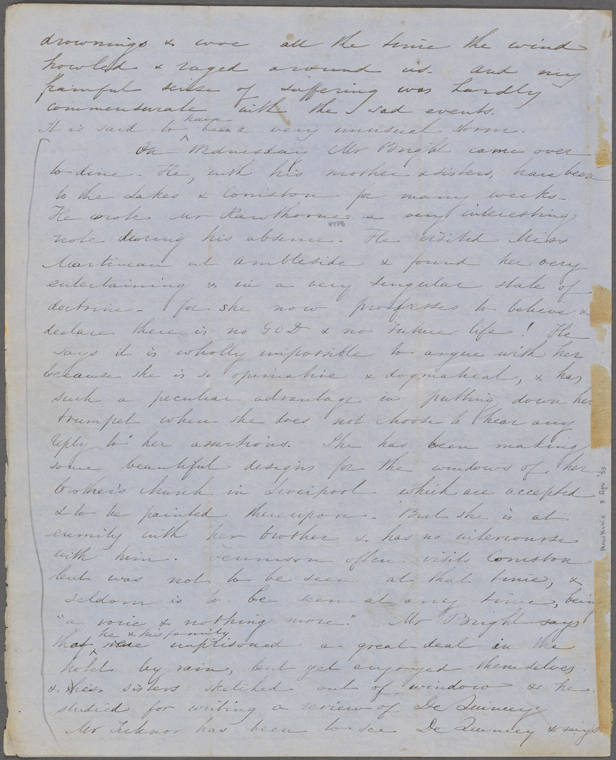 drownings & woe all the time the wind
howled & raged around us. And my
painful sense of suffering was hardly
commensurate with the sad events.
It is said to have been a very unusual storm.
On Wednesday Mr Bright came over
to dine. He, with his mother & sisters, have been
to the Lakes & Coniston for many weeks.
He wrote Mr Hawthorne a very interesting
note during his absence. He visited Miss
Martineau at Ambleside & found her very
entertaining & in a very singular state of
doctrine - for she now professes to believe &
declare there is no GOD & no future life! He
says it is wholly impossible to argue with her
because she is so opinionative & dogmatical, & has
such a peculiar advantage in putting down her
trumpet when she does not choose to hear any
reply to her assertions. She has been making
some beautiful designs for the windows of her
brother's church in Liverpool which are accepted
& to be painted thereupon. But she is at
enmity with her brother & has no intercourse
with him. Tennison often visits Coniston
but was not to be seen at that time, &
seldom is to be seen at any time, being
"a voice & nothing more." Mr Bright says
that he & his family were imprisoned a great deal in the
hotel by rain, but yet enjoyed themselves
& his sisters sketched out of window & he
studied for writing a review of De Quincey.
Mr Ticknor has been to see De Quincey & says